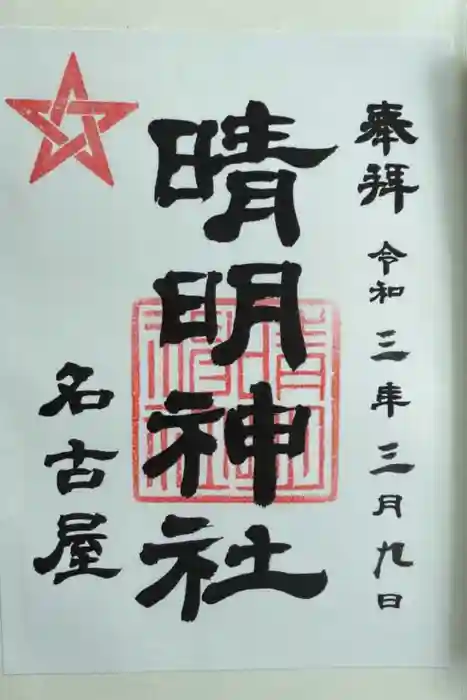 奉拝 令和三年三月九日
晴明神社
名古屋
晴明
神社